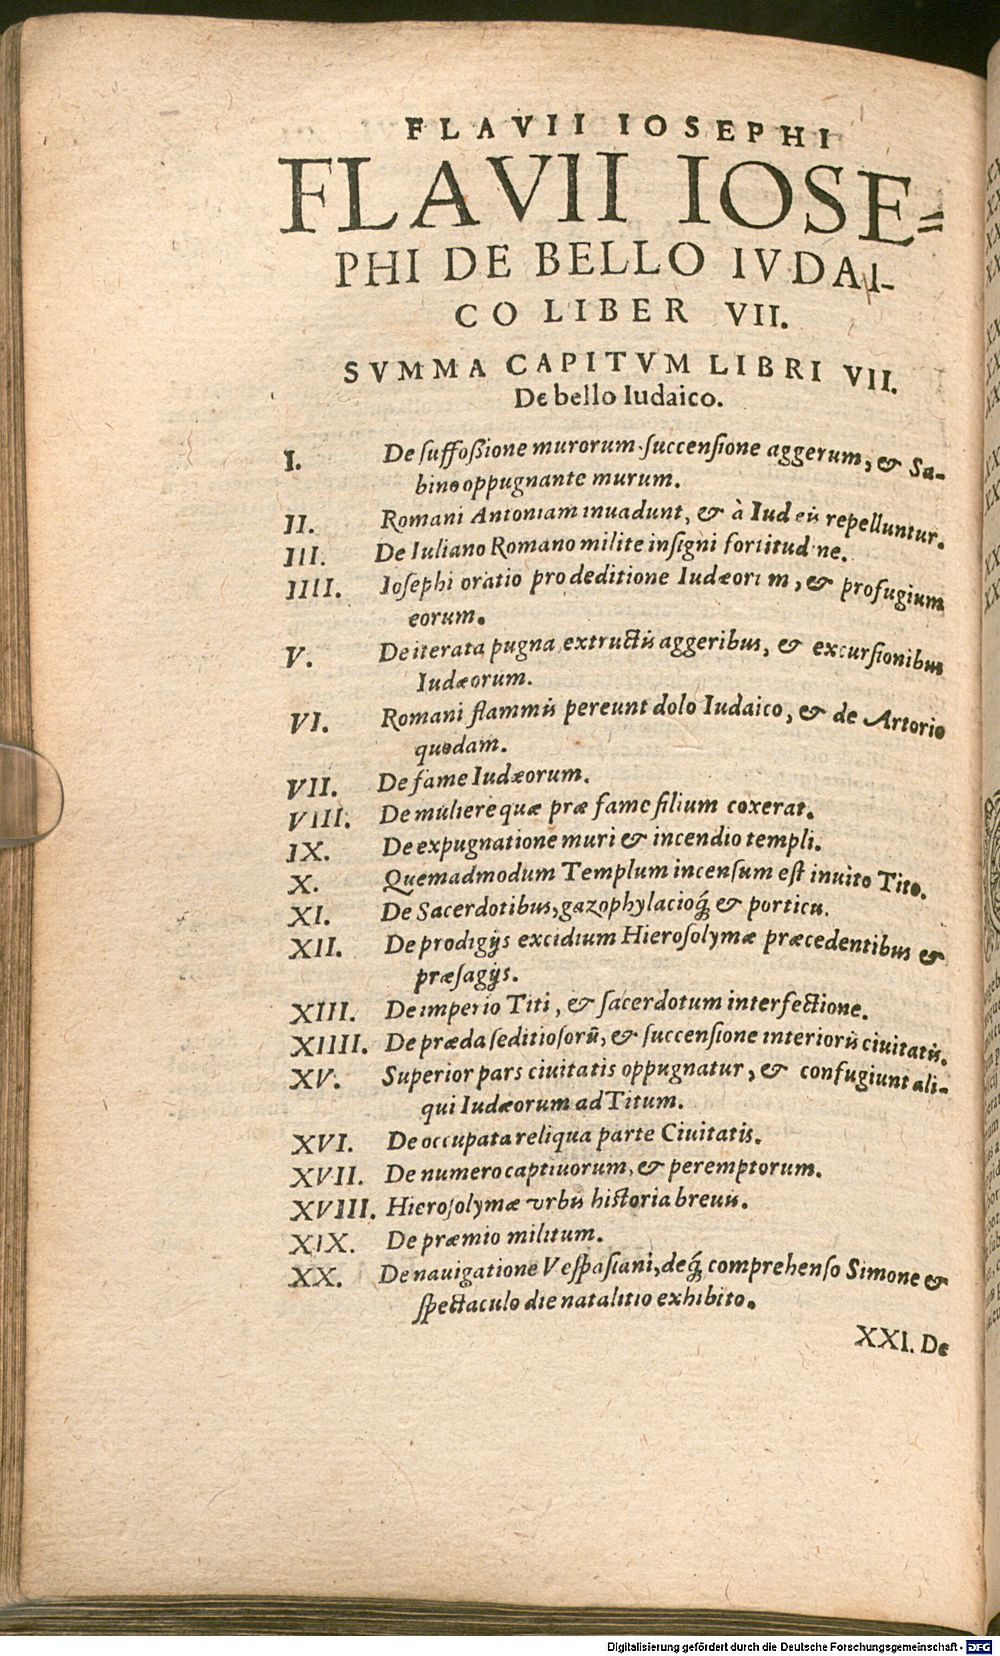 FLAVII IOSEPHI
FLAVII IOSE=
PHI DE BELLO IVDAI-
CO LIBER VII.
SVMMA CAPITVM LIBRI VII.
De bello Iudaico.
I. De suffoßione murorum, succensione aggerum, & Sa-
bino oppugnante murum.
II. Romani Antoniam inuadunt, & à Iudæis repelluntur.
III. De Iuliano Romano milite insigni fortitudine.
IIII. Iosephi oratio pro deditione Iudæorum, & profugium
eorum.
V. De iterata pugna, extructis aggeribus, & excursionibus
Iudæorum.
VI. Romani flammis pereunt dolo Iudaico, & de Artorio
quodam.
VII. De fame Iudæorum.
VIII. De muliere quæ præ fame filium coxerat.
IX. De expugnatione muri & incendio templi.
X. Quemadmodum Templum incensum est inuito Tito.
XI. De Sacerdotibus, gazophylacioq́; & porticu.
XII. De prodigijs excidium Hierosolymæ præcedentibus &
præsagijs.
XIII. De imperio Titi, & sacerdotum interfectione.
XIIII. De præda seditiosorū, & succensione interioris ciuitatis.
XV. Superior pars ciuitatis oppugnatur, & confugiunt ali-
qui Iudæorum ad Titum.
XVI. De occupata reliqua parte Ciuitatis.
XVII. De numero captiuorum, & peremptorum.
XVIII. Hierosolymæ vrbis historia breuis.
XIX. De præmio militum.
XX. De nauigatione Vespasiani, deq́; comprehenso Simone &
spectaculo die natalitio exhibito.
XXI. De
Digitalisierung gefördert durch die Deutsche Forschungsgemeinschaft - DFG